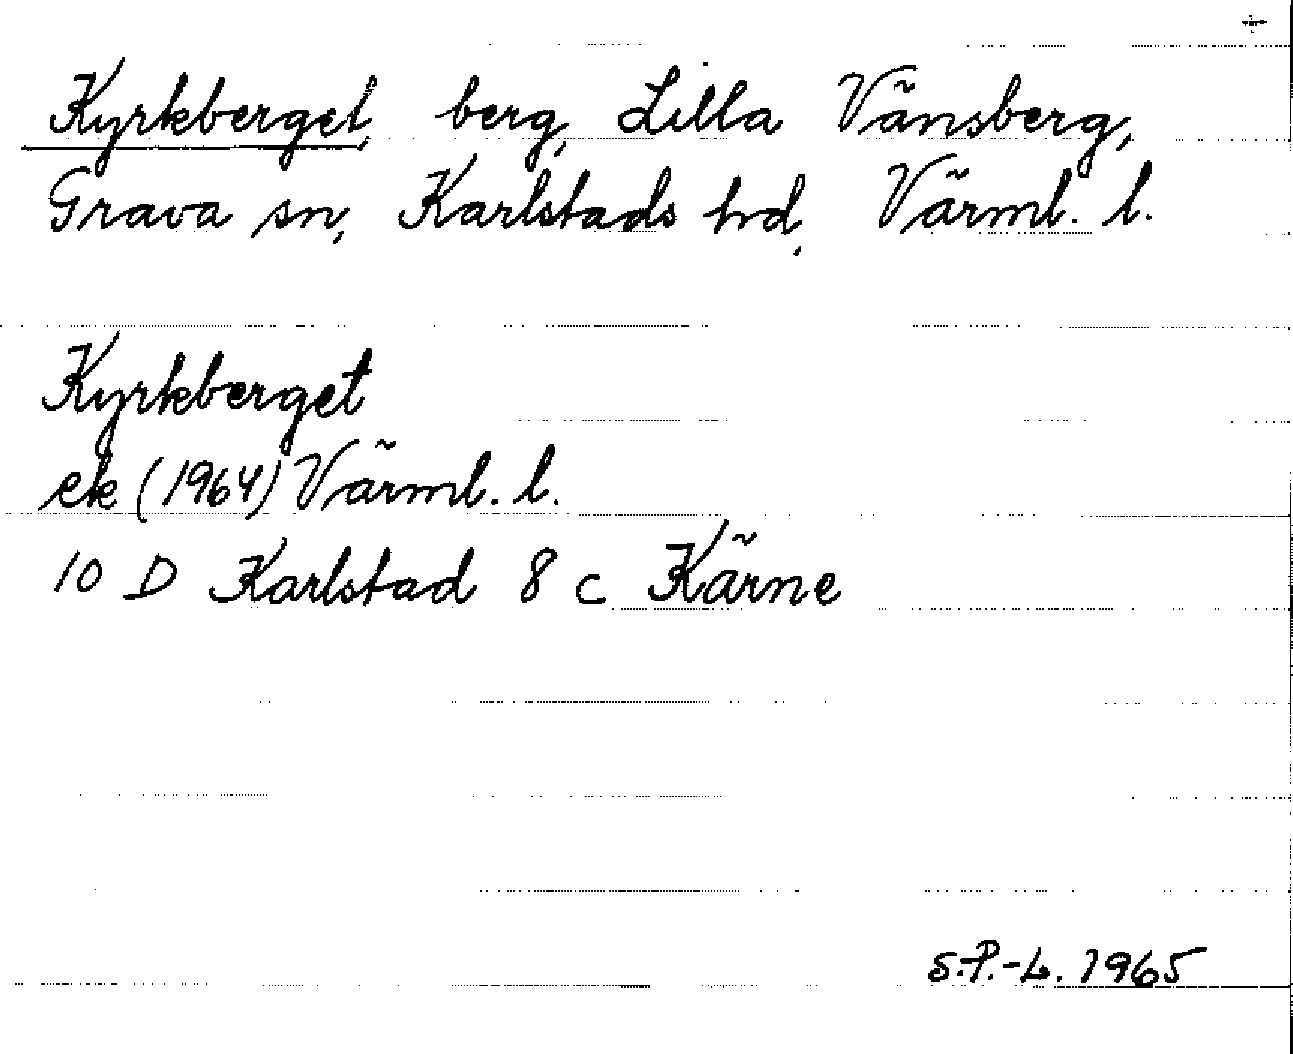 Kyrkberget, berg, Lilla Vänsberg,
Grava sn, Karlstads hd, Värml. l.
Kyrkberget
ek (1964) Värml. l.
10 D Karlstad 8 c Kärne
S.P.-L. 1965